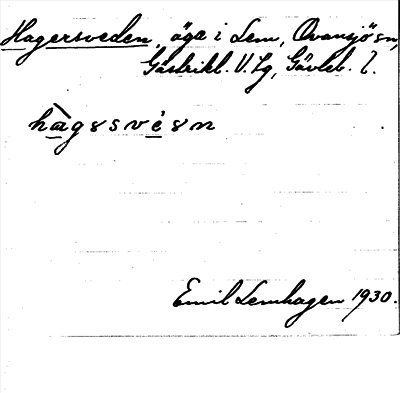 Hagersveden, äga i Lem, Ovansjö sn,
Gästrikl. V. Lg, Gävleb. l.
hàgɜsvéɜn
Emil Lemhagen 1930.